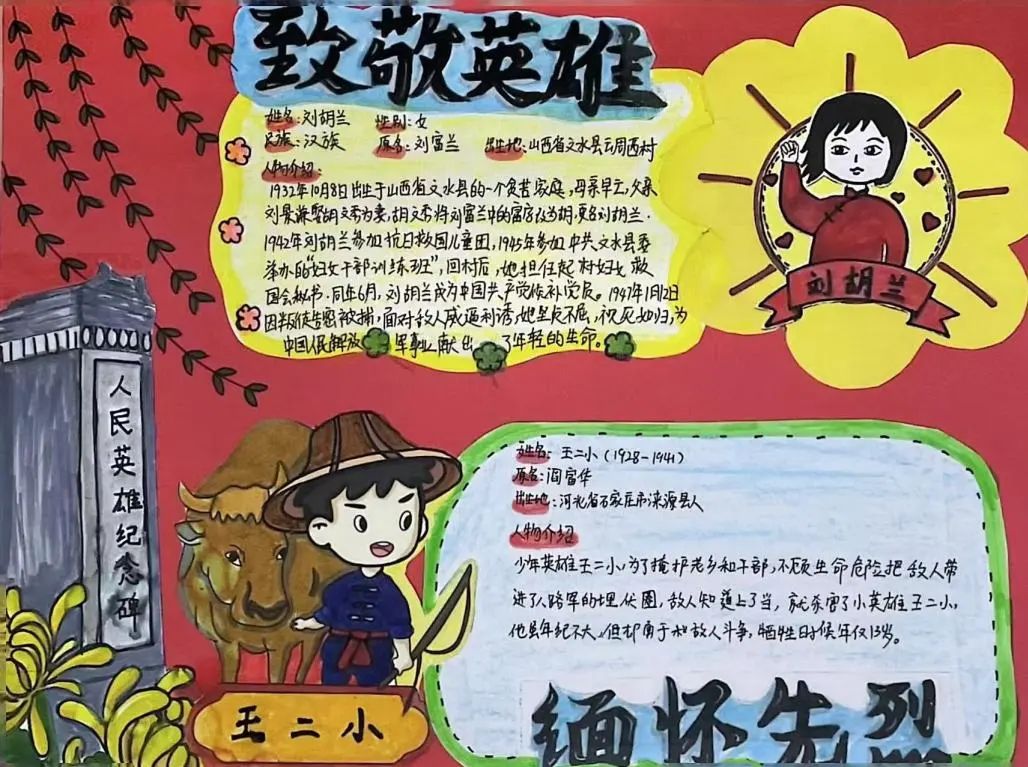 致敬英雄
姓名：刘胡兰 性别：女
民族：汉族 原名：刘富兰 出生地：山西省文水县云周西村
人物介绍：
1932年10月8日出生于山西省文水县的一个贫苦家庭，母亲早亡，父亲
刘景谦娶胡文秀为妻，胡文秀将刘富兰中的富字改为胡，更名刘胡兰.
1942年刘胡兰参加抗日救国儿童团，1945年参加中共文水县委
举办的“妇女干部训练班”，回村后，她担任起村妇女救
国会秘书.同年6月，刘胡兰成为中国共产党候补党员。1947年1月12日
因叛徒告密被捕，面对敌人威逼利诱，她坚贞不屈，视死如归，为
中国人民解放 军事业献出 了年轻的生命。
刘胡兰
人民英雄纪念碑
姓名：王二小（1928-1941）
原名：阎富华
出生地：河北省石家庄市涞源县人
人物介绍
少年英雄王二小，为了掩护老乡和干部，不顾生命危险把敌人带
进了八路军的埋伏圈，敌人知道上了当，就杀害了小英雄王二小，
他虽年纪不大，但却勇于和敌人斗争，牺牲时候年仅13岁。
王二小
缅怀先烈